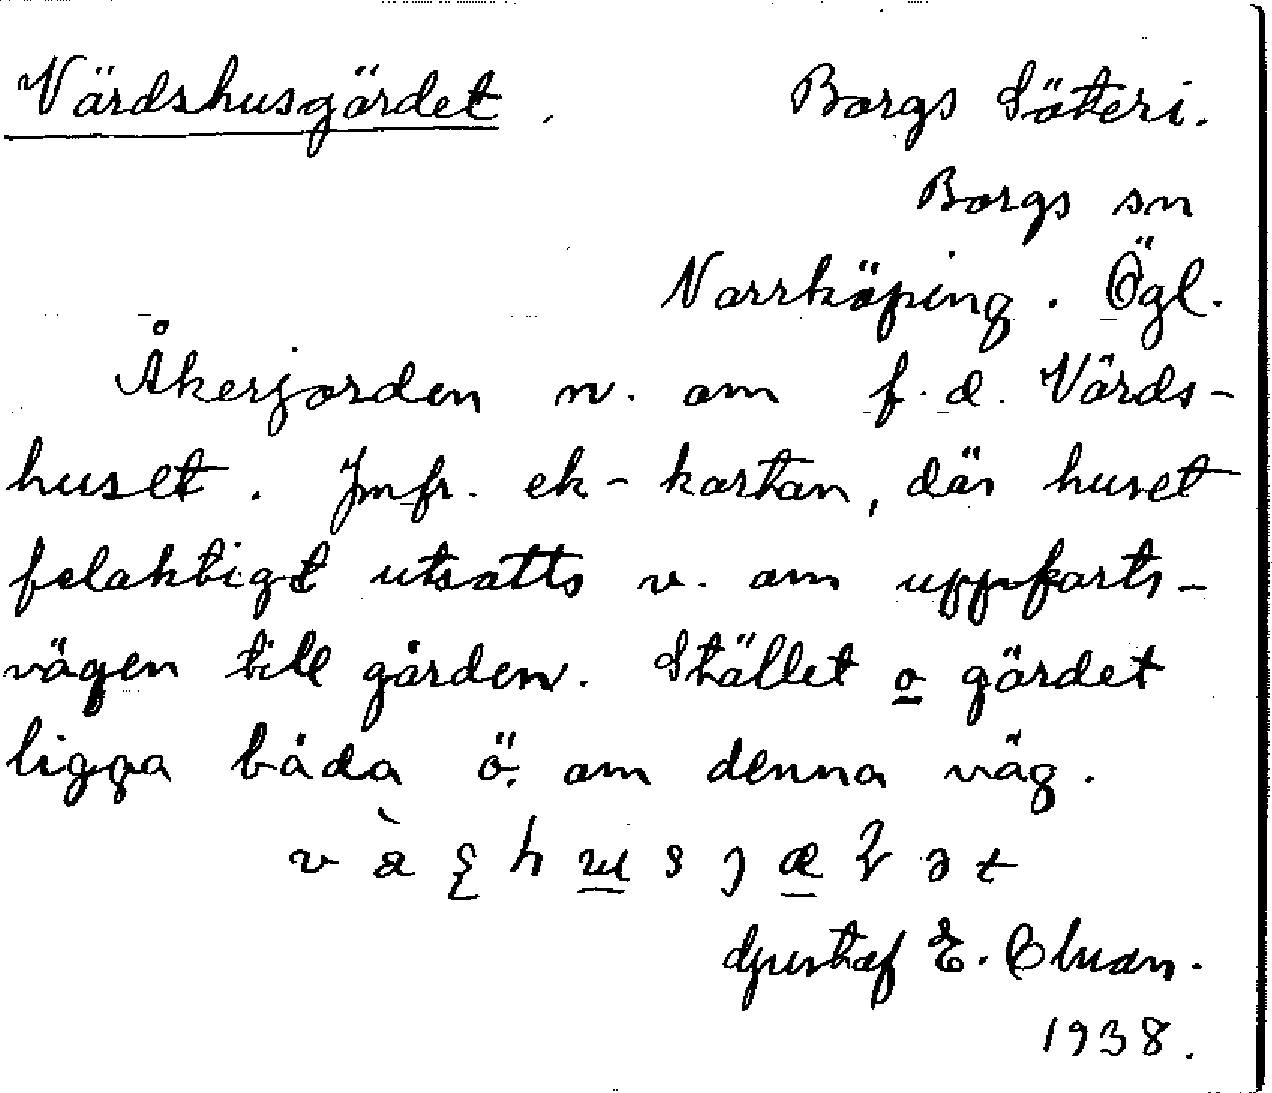 Värdshusgärdet. Borgs Säteri.
Borgs sn
Norrköping. Ögl.
Åkerjorden n. om f.d. Värds-
huset. Jmfr. ek-kartan, där huset
felaktigt utsatts v. om uppfarts-
vägen till gården. Stället o gärdet
ligga båda ö. om denna väg.
Gustaf E.
1938.